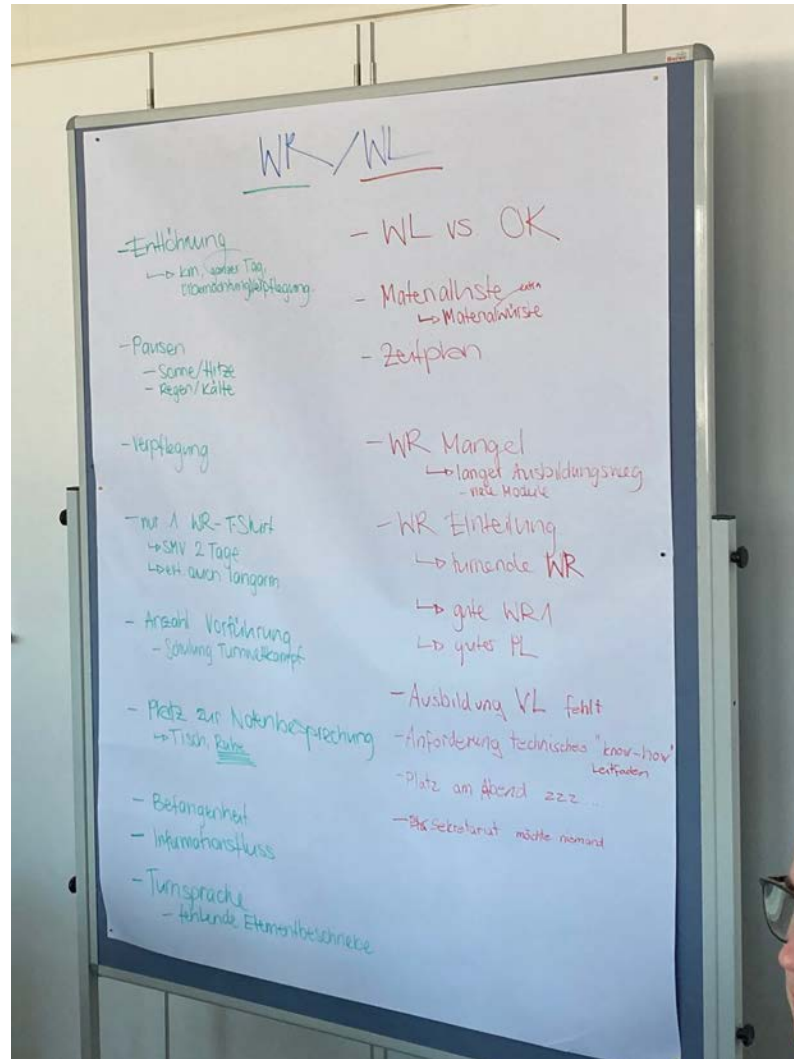 WR / WL
- Entlöhnung
↳ km, Tag,
Übernachtung/Verpflegung
- Pausen
- Sonne/Hitze
- Regen/Kälte
- Verpflegung
- nur 1 WR-T-Shirt
↳ SMV 2 Tage
↳ evt. auch langarm
- Anzahl Vorführung
- Schulung Turnwettkampf
- Platz zur Notenbesprechung
↳ Tisch, Ruhe
- Befangenheit
- Informationsfluss
- Turnsprache
- fehlende Elementbeschriebe
- WL vs. OK
- Materialliste extra
↳ Materialwürste
- Zeitplan
- WR Mangel
↳ langer Ausbildungsweg
- neue Module
- WR Einteilung
↳ turnende WR
↳ gute WR1
↳ guter PL
- Ausbildung VL fehlt
- Anforderung technisches "know-how"
Leitfaden
- Platz am Abend zzz....
- Sekretariat möchte niemand